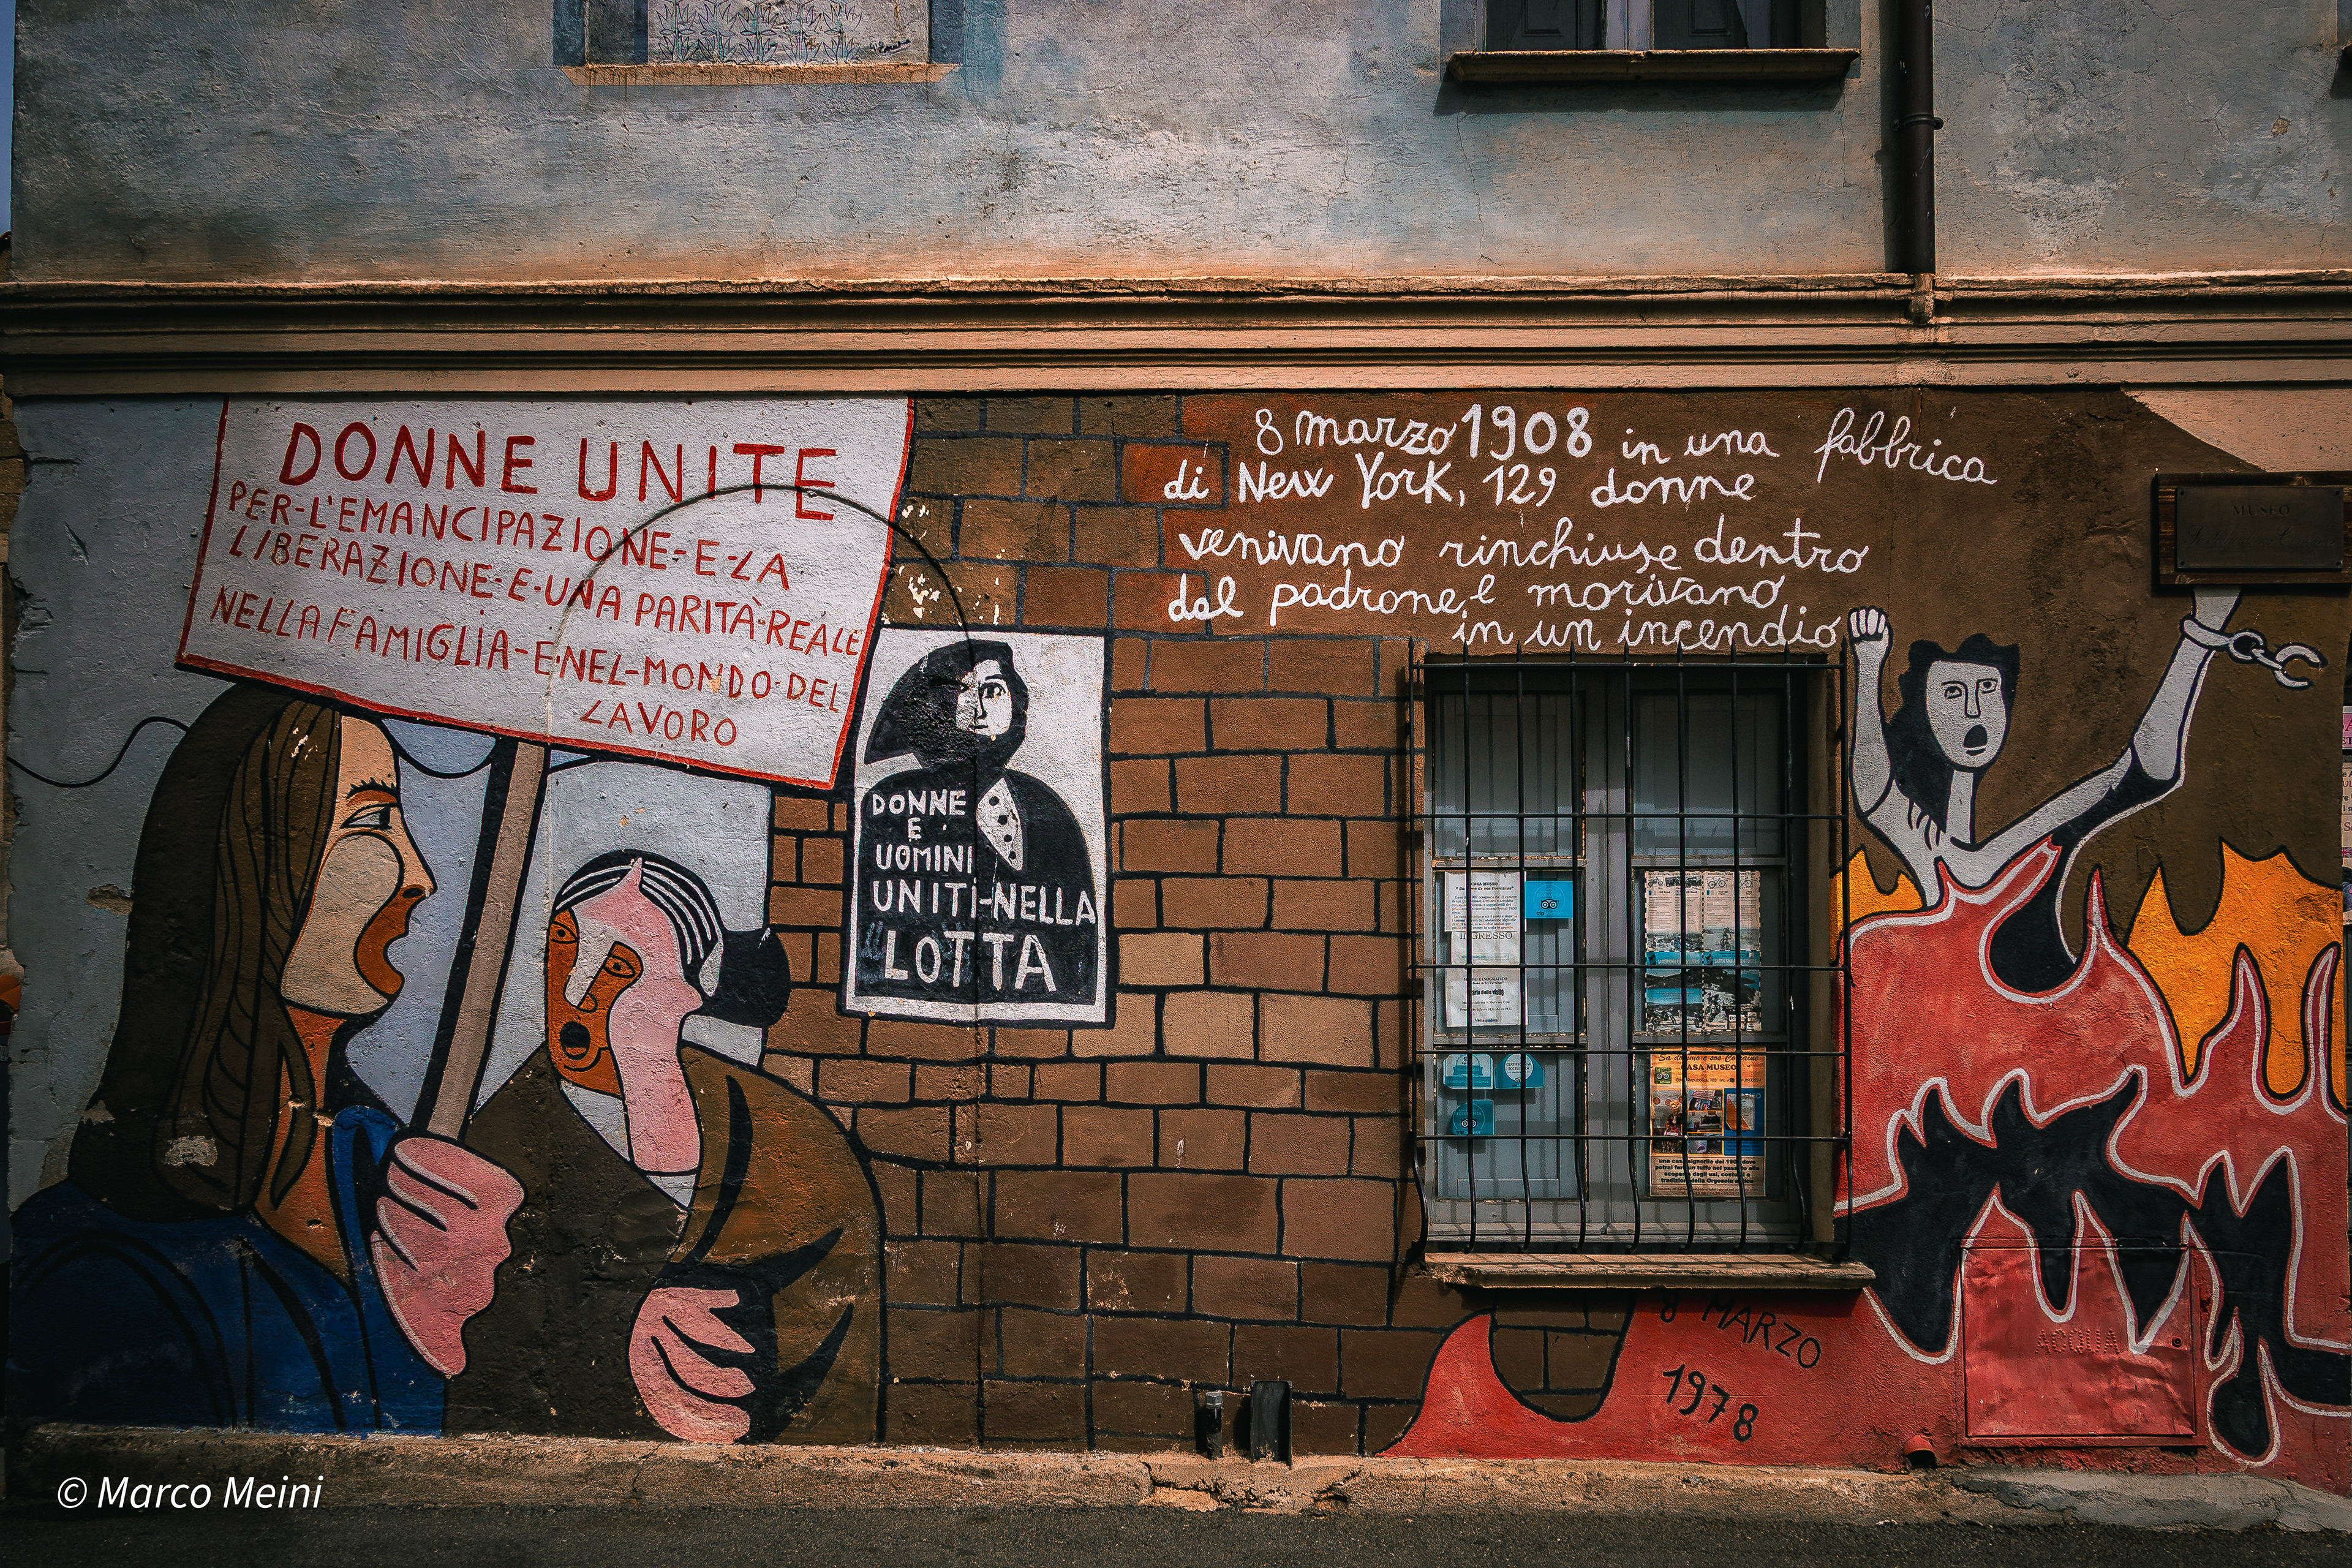 DONNE UNITE
PER-L'EMANCIPAZIONE-E-LA
LIBERAZIONE-E-UNA PARITÀ-REALE
NELLA FAMIGLIA-E-NEL-MONDO-DEL
LAVORO
DONNE
E
UOMINI
UNITI-NELLA
LOTTA
8 marzo 1908 in una fabbrica
di New York, 129 donne
venivano rinchiuse dentro
dal padrone, e morivano
in un incendio
MUSEO
CASA MUSEO
INGRESSO
CASA MUSEO
8 MARZO
1978
ACQUA
© Marco Meini